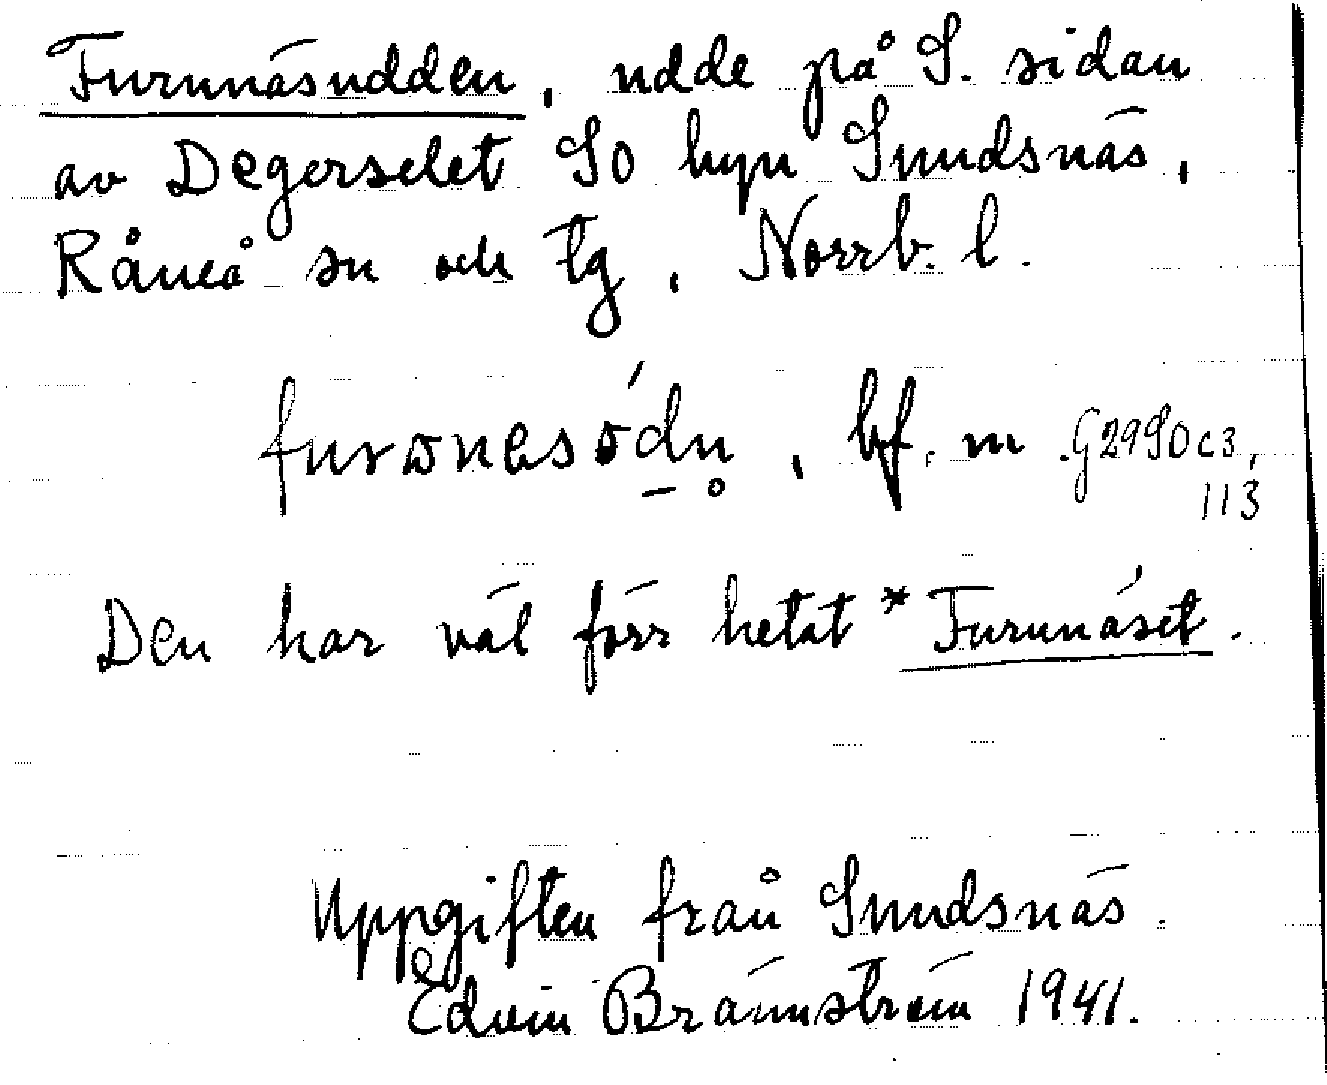 Furunäsudden, udde på S. sidan
av Degerselet SO byn Sundsnäs,
Råneå sn och tg, Norrb. l.
furɷnesödn̥, bf. m G29SOc3,
113
Den har väl förr hetat *Furunäset.
Uppgiften från Sundsnäs.
Edvin Brännström 1941.